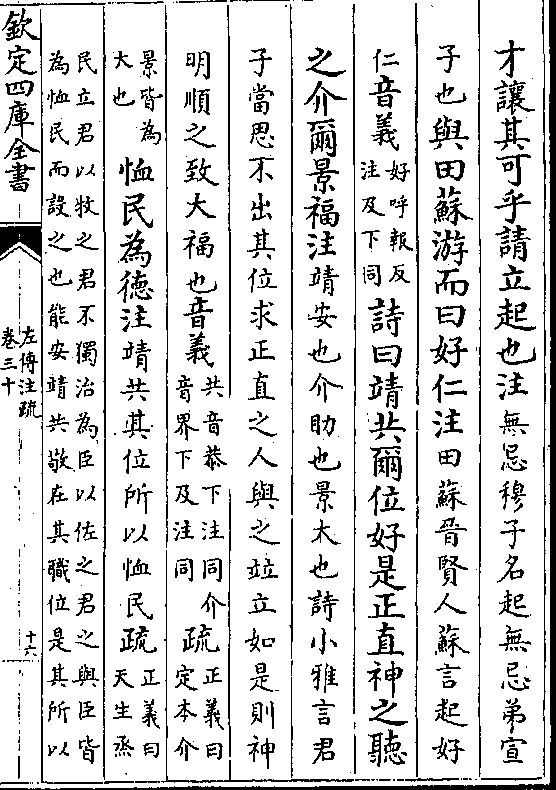 才讓其可乎請立起也注無忌穆子名起無忌弟宣
子也與田蘇游而曰好仁注田蘇晉賢人蘇言起好
仁音義好呼報反
注及下同詩曰靖共爾位好是正直神之聽
之介爾景福注靖安也介助也景大也詩小雅言君
子當思不出其位求正直之人與之竝立如是則神
明順之致大福也音義共音恭下注同介
音界下及注同疏正義曰
定本介
景皆為
大也恤民為德注靖共其位所以恤民疏正義曰
天生烝
民立君以牧之君不獨治為臣以佐之君之與臣皆
為恤民而設之也能安靖共敬在其職位是其所以
欽定四庫全書
左傳注疏
卷三十
十六